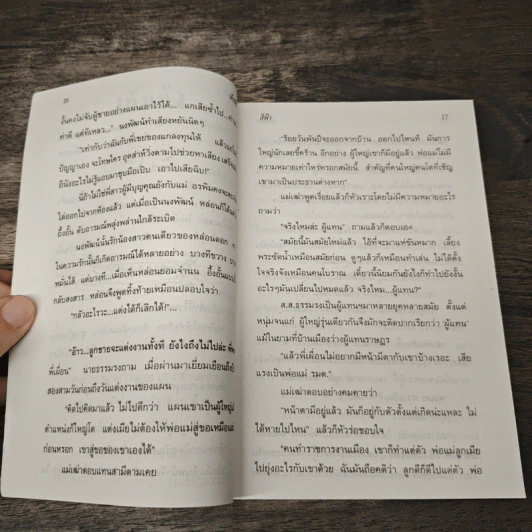 16
งั้นคงไม่จับผู้ชายอย่างแผนเอาไว้ได้... แกเสียซ้ำไป...
ทำดี แต่ทีเหลว..." นงพัฒน์ทำเสียงหยันนิดๆ
"เท่ากับว่าฉันกับพี่เขยของแกลงทุนให้ แล้ว
ปัญญาเอง จะโทษใคร อุตส่าห์วิ่งตามไปช่วยหาเสียง
อีนังอะไรไม่รู้แอบมาชุบมือเปิบ เอาไปเสียฉิบ!"
นี่ถ้าไม่ใช่พี่สาวผู้มีบุญคุณยังกับแม่ อรพิมคงจะ
ไล่ออกไปจากห้องแล้ว แต่เมื่อเป็นนงพัฒน์ หล่อนก็ได้แต่
อึ้งอั้น คับอารมณ์พลุ่งพล่านใกล้ระเบิด
นงพัฒน์นั้นรักน้องสาวคนเดียวของหล่อนดอก
ในความรักนั้นก็เกิดอารมณ์ได้หลายอย่าง บางทีขวาง
หมั่นไส้ แต่บางที...เมื่อเห็นหล่อนยอมจำนน อึ้งอั้น
กลับสงสาร หล่อนจึงพูดทิ้งท้ายเหมือนปลอบใจว่า
"กลัวอะไรวะ...แต่งได้ก็เลิกได้!"
"อ้าว...ลูกชายจะแต่งงานทั้งที ยังไงถึงไม่ไปล่ะ
พี่เผื่อน" นายธรรมรงถาม เมื่อผ่านมาเยี่ยมเยือนถึง
สองสามวันก่อนถึงวันแต่งงานของแผน
"คิดไปคิดมาแล้ว ไม่ไปดีกว่า แผนเขาเป็นผู้ใหญ่
ตำแหน่งก็ใหญ่โต แต่งเมียไม่ต้องให้พ่อแม่สู่ขอเหมือน
ก่อนหรอก เขาสู่ขอของเขาเองได้"
แม่เฒ่าตอบแทนสามีตามเคย
สีฟ้า
17
"ร้อยวันพันปีจะออกจากบ้าน ออกไปไหนที มันการ
ใหญ่นักเลยขี้คร้าน อีกอย่าง ผู้ใหญ่เขาก็มีอยู่แล้ว พ่อแม่ไม่มี
ความหมายเท่าไหร่หรอกสมัยนี้ สำคัญที่คนใหญ่คนโตที่เชิญ
เขามาเป็นประธานต่างหาก"
แม่เฒ่าพูดเรื่อยแล้วก็หัวเราะโดยไม่มีความหมายอะไร
ถามว่า
"จริงไหมล่ะ ผู้แทน" ถามแล้วก็ตอบเอง
"สมัยนี้มันสมัยใหม่แล้ว ไอ้ที่จะมาแห่ขันหมาก เลี้ยง
พระซัดน้ำเหมือนสมัยก่อน ดูๆแล้วก็เหมือนทำเล่น ไม่ได้ตั้ง
ใจจริงจังเหมือนคนโบราณ เดี๋ยวนี้นิยมกันยังไงก็ทำไปยังงั้น
อะไรๆมันเปลี่ยนไปหมดแล้ว จริงไหม...ผู้แทน?"
ส.ส.ธรรมรงเป็นผู้แทนขมาหลายยุคหลายสมัย ตั้งแต่
หนุ่มจนแก่ ผู้ใหญ่รุ่นเดียวกันจึงมักจะติดปากเรียกว่า 'ผู้แทน'
แม้ในยามที่บ้านเมืองว่างผู้แทนราษฎร
"แล้วพี่เผื่อนไม่อยากมีหน้ามีตากับเขาบ้างเรอะ เสีย
แรงเป็นพ่อแม่ รมต."
แม่เฒ่าตอบอย่างคมคายว่า
"หน้าตามีอยู่แล้ว มันก็อยู่กับตัวตั้งแต่เกิดน่ะแหละ ไม่
ได้หายไปไหน" แล้วก็หัวร่อชอบใจ
"คนทำราชการงานเมือง เขาก็ทำแต่ตัว พ่อแม่ลูกเมีย
ไปยุ่งอะไรกับเขาด้วย ฉันมันถือคติว่า ลูกดีก็ดีไปแต่ตัว พ่อ